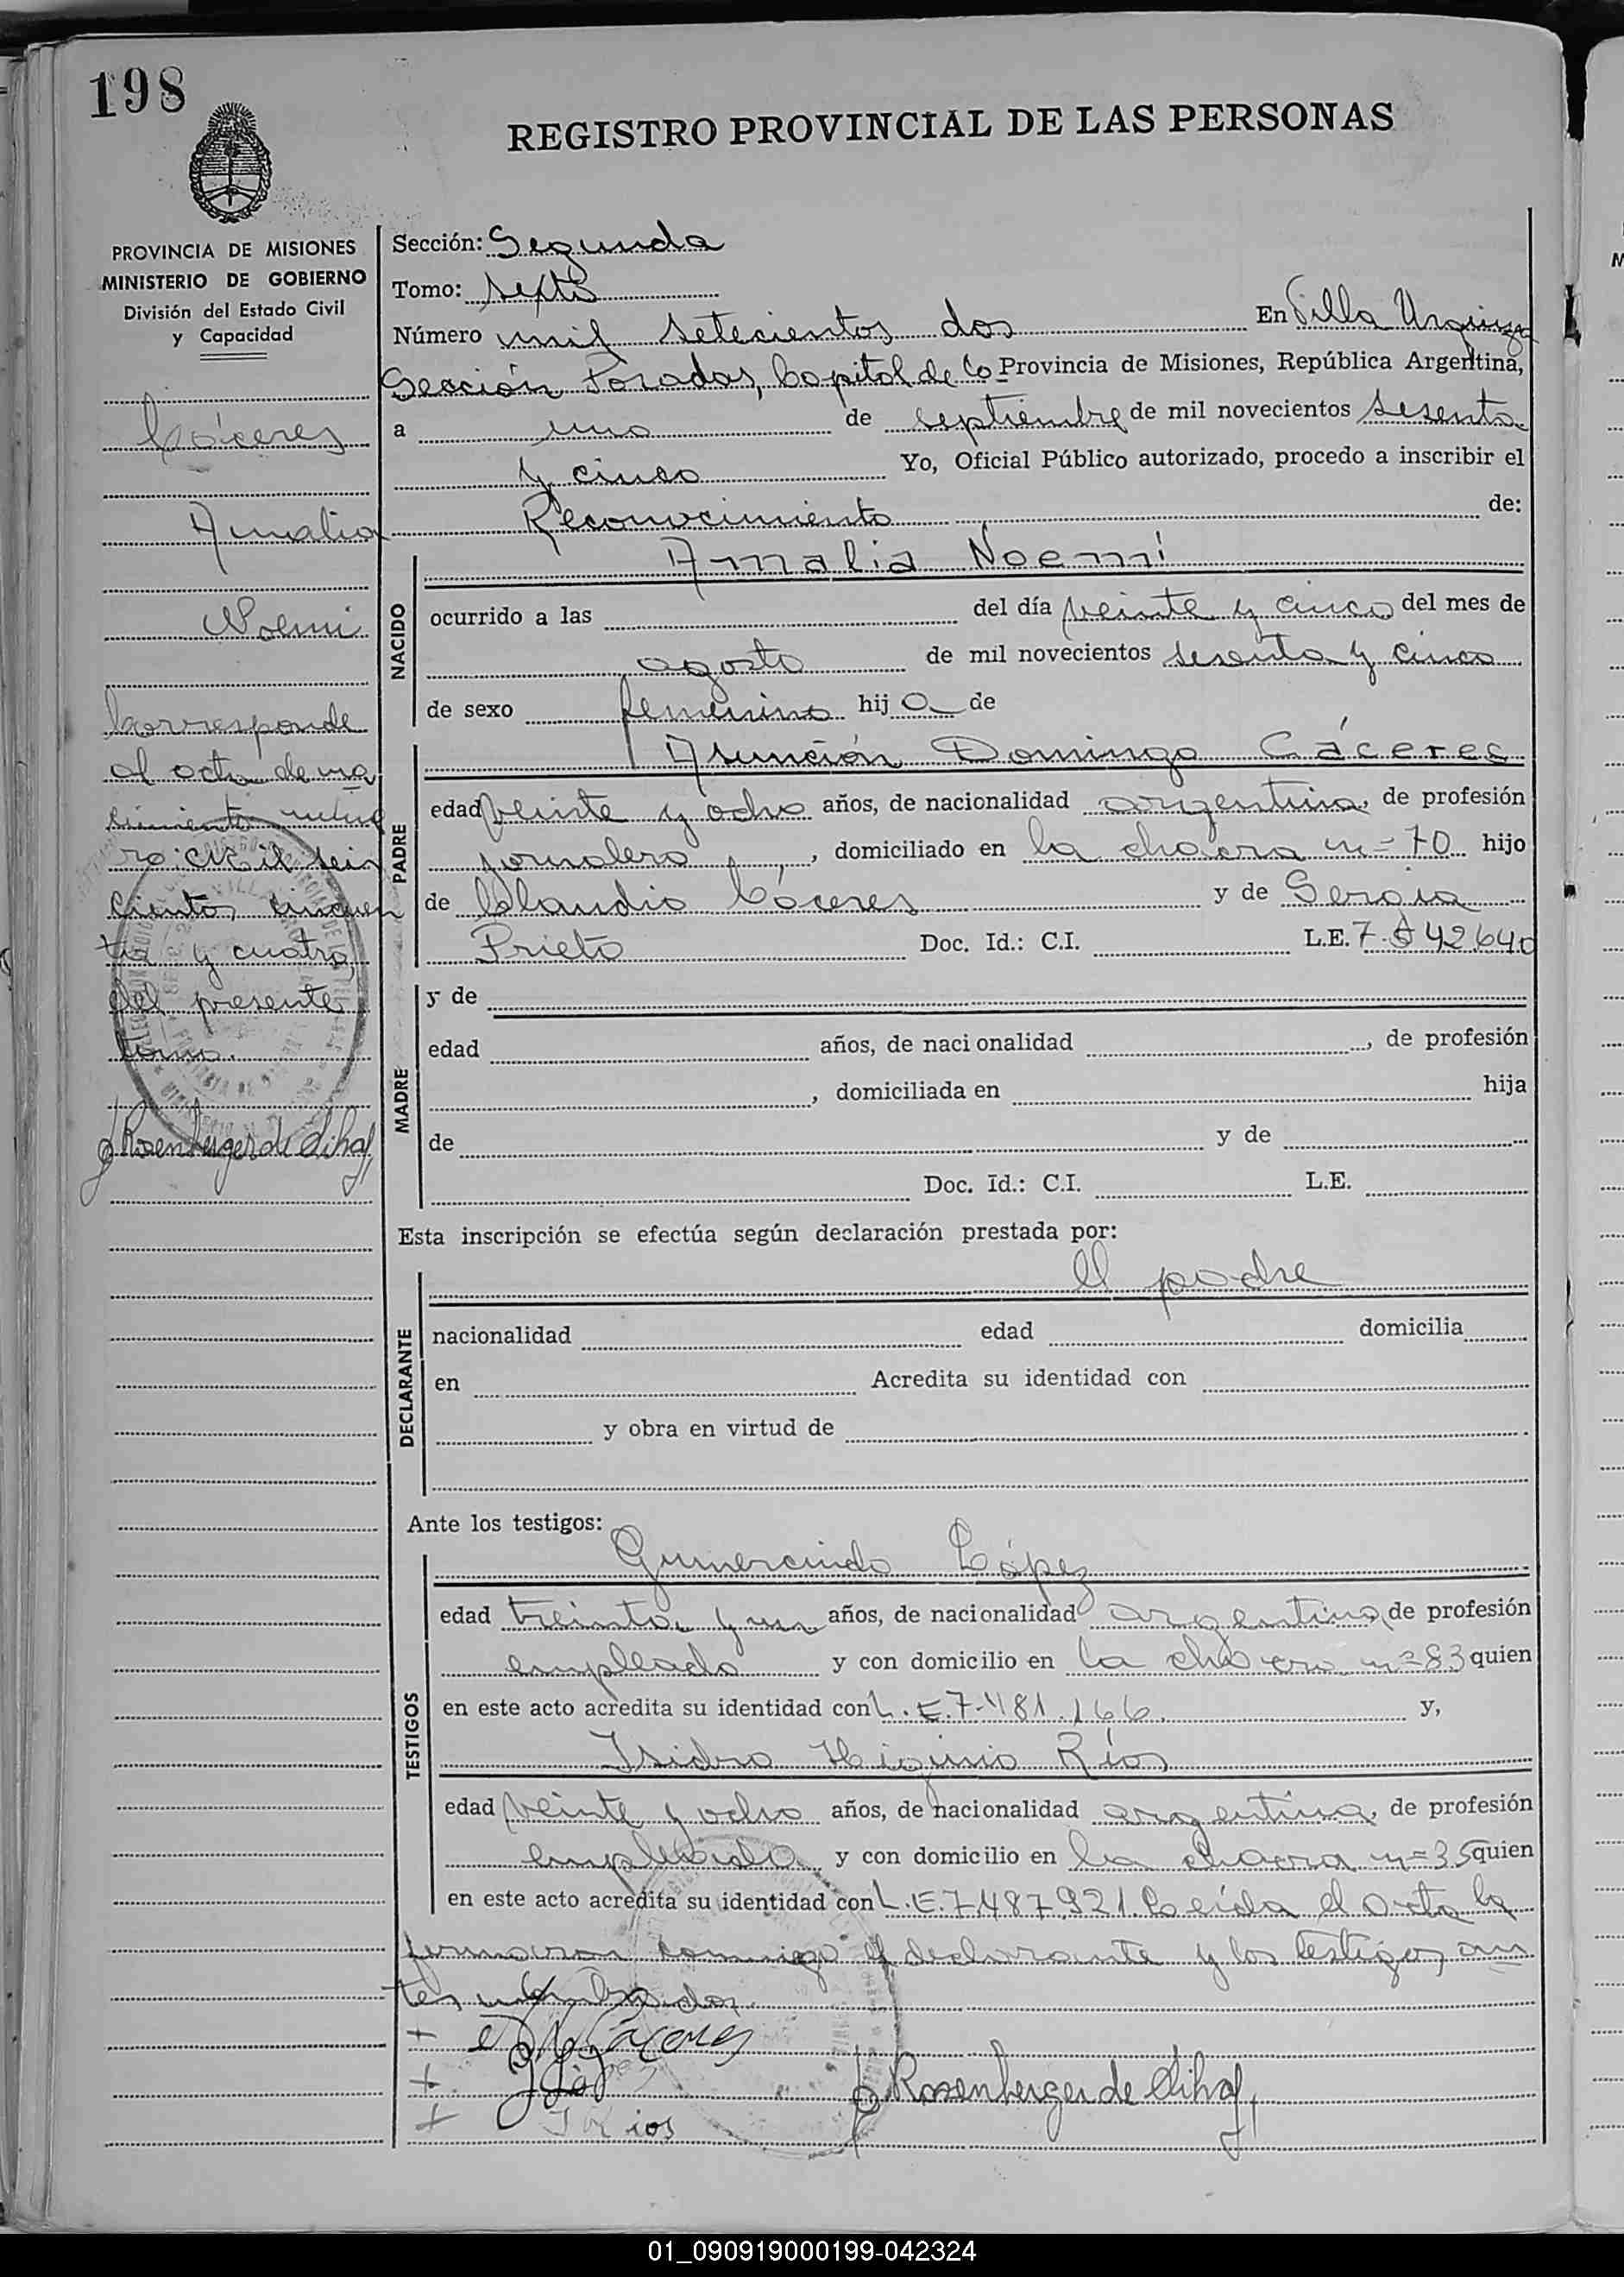 198
REGISTRO PROVINCIAL DE LAS PERSONAS
PROVINCIA DE MISIONES
MINISTERIO DE GOBIERNO
División del Estado Civil
y Capacidad
Cáceres
Amalia
Noemi
Corresponde
al acta de na
cimiento núme
ro: mil seis
cientos cincuen
ta y cuatro,
del presente
tomo.
Rosenberger de
Sección: Segunda
Tomo: sexto
Número mil setecientos dos En Villa Urquiza
Sección Posadas, Capital de la Provincia de Misiones, República Argentina,
a uno de septiembre de mil novecientos sesenta
y cinco Yo, Oficial Público autorizado, procedo a inscribir el
Reconocimiento de:
NACIDO
Amalia Noemí
ocurrido a las del día veinte y cinco del mes de
agosto de mil novecientos sesenta y cinco
de sexo femenino hija de
PADRE
Asunción Domingo Cáceres
edad veinte y ocho años, de nacionalidad argentina, de profesión
jornalero, domiciliado en la chacra n=70 hijo
de Claudio Cáceres y de Sergia
Prieto Doc. Id.: C.I. L.E. 7.542640
MADRE
y de
edad años, de nacionalidad , de profesión
, domiciliada en hija
de y de
Doc. Id.: C.I. L.E.
Esta inscripción se efectúa según declaración prestada por:
DECLARANTE
El padre
nacionalidad edad domicilia
en Acredita su identidad con
y obra en virtud de
Ante los testigos:
TESTIGOS
Gumercindo López
edad treinta y un años, de nacionalidad argentina, de profesión
empleado y con domicilio en la chacra n=83 quien
en este acto acredita su identidad con L.E.7.481.166. y,
Isidro Higinio Ríos
edad veinte y ocho años, de nacionalidad argentina, de profesión
empleado y con domicilio en la chacra n=35 quien
en este acto acredita su identidad con L.E.7.487.921. Leída el acta la
firmaron conmigo el declarante y los testigos an
tes nombrados.
+ Cáceres
+ López
+ Rios
Rosenberger de
01_090919000199-042324